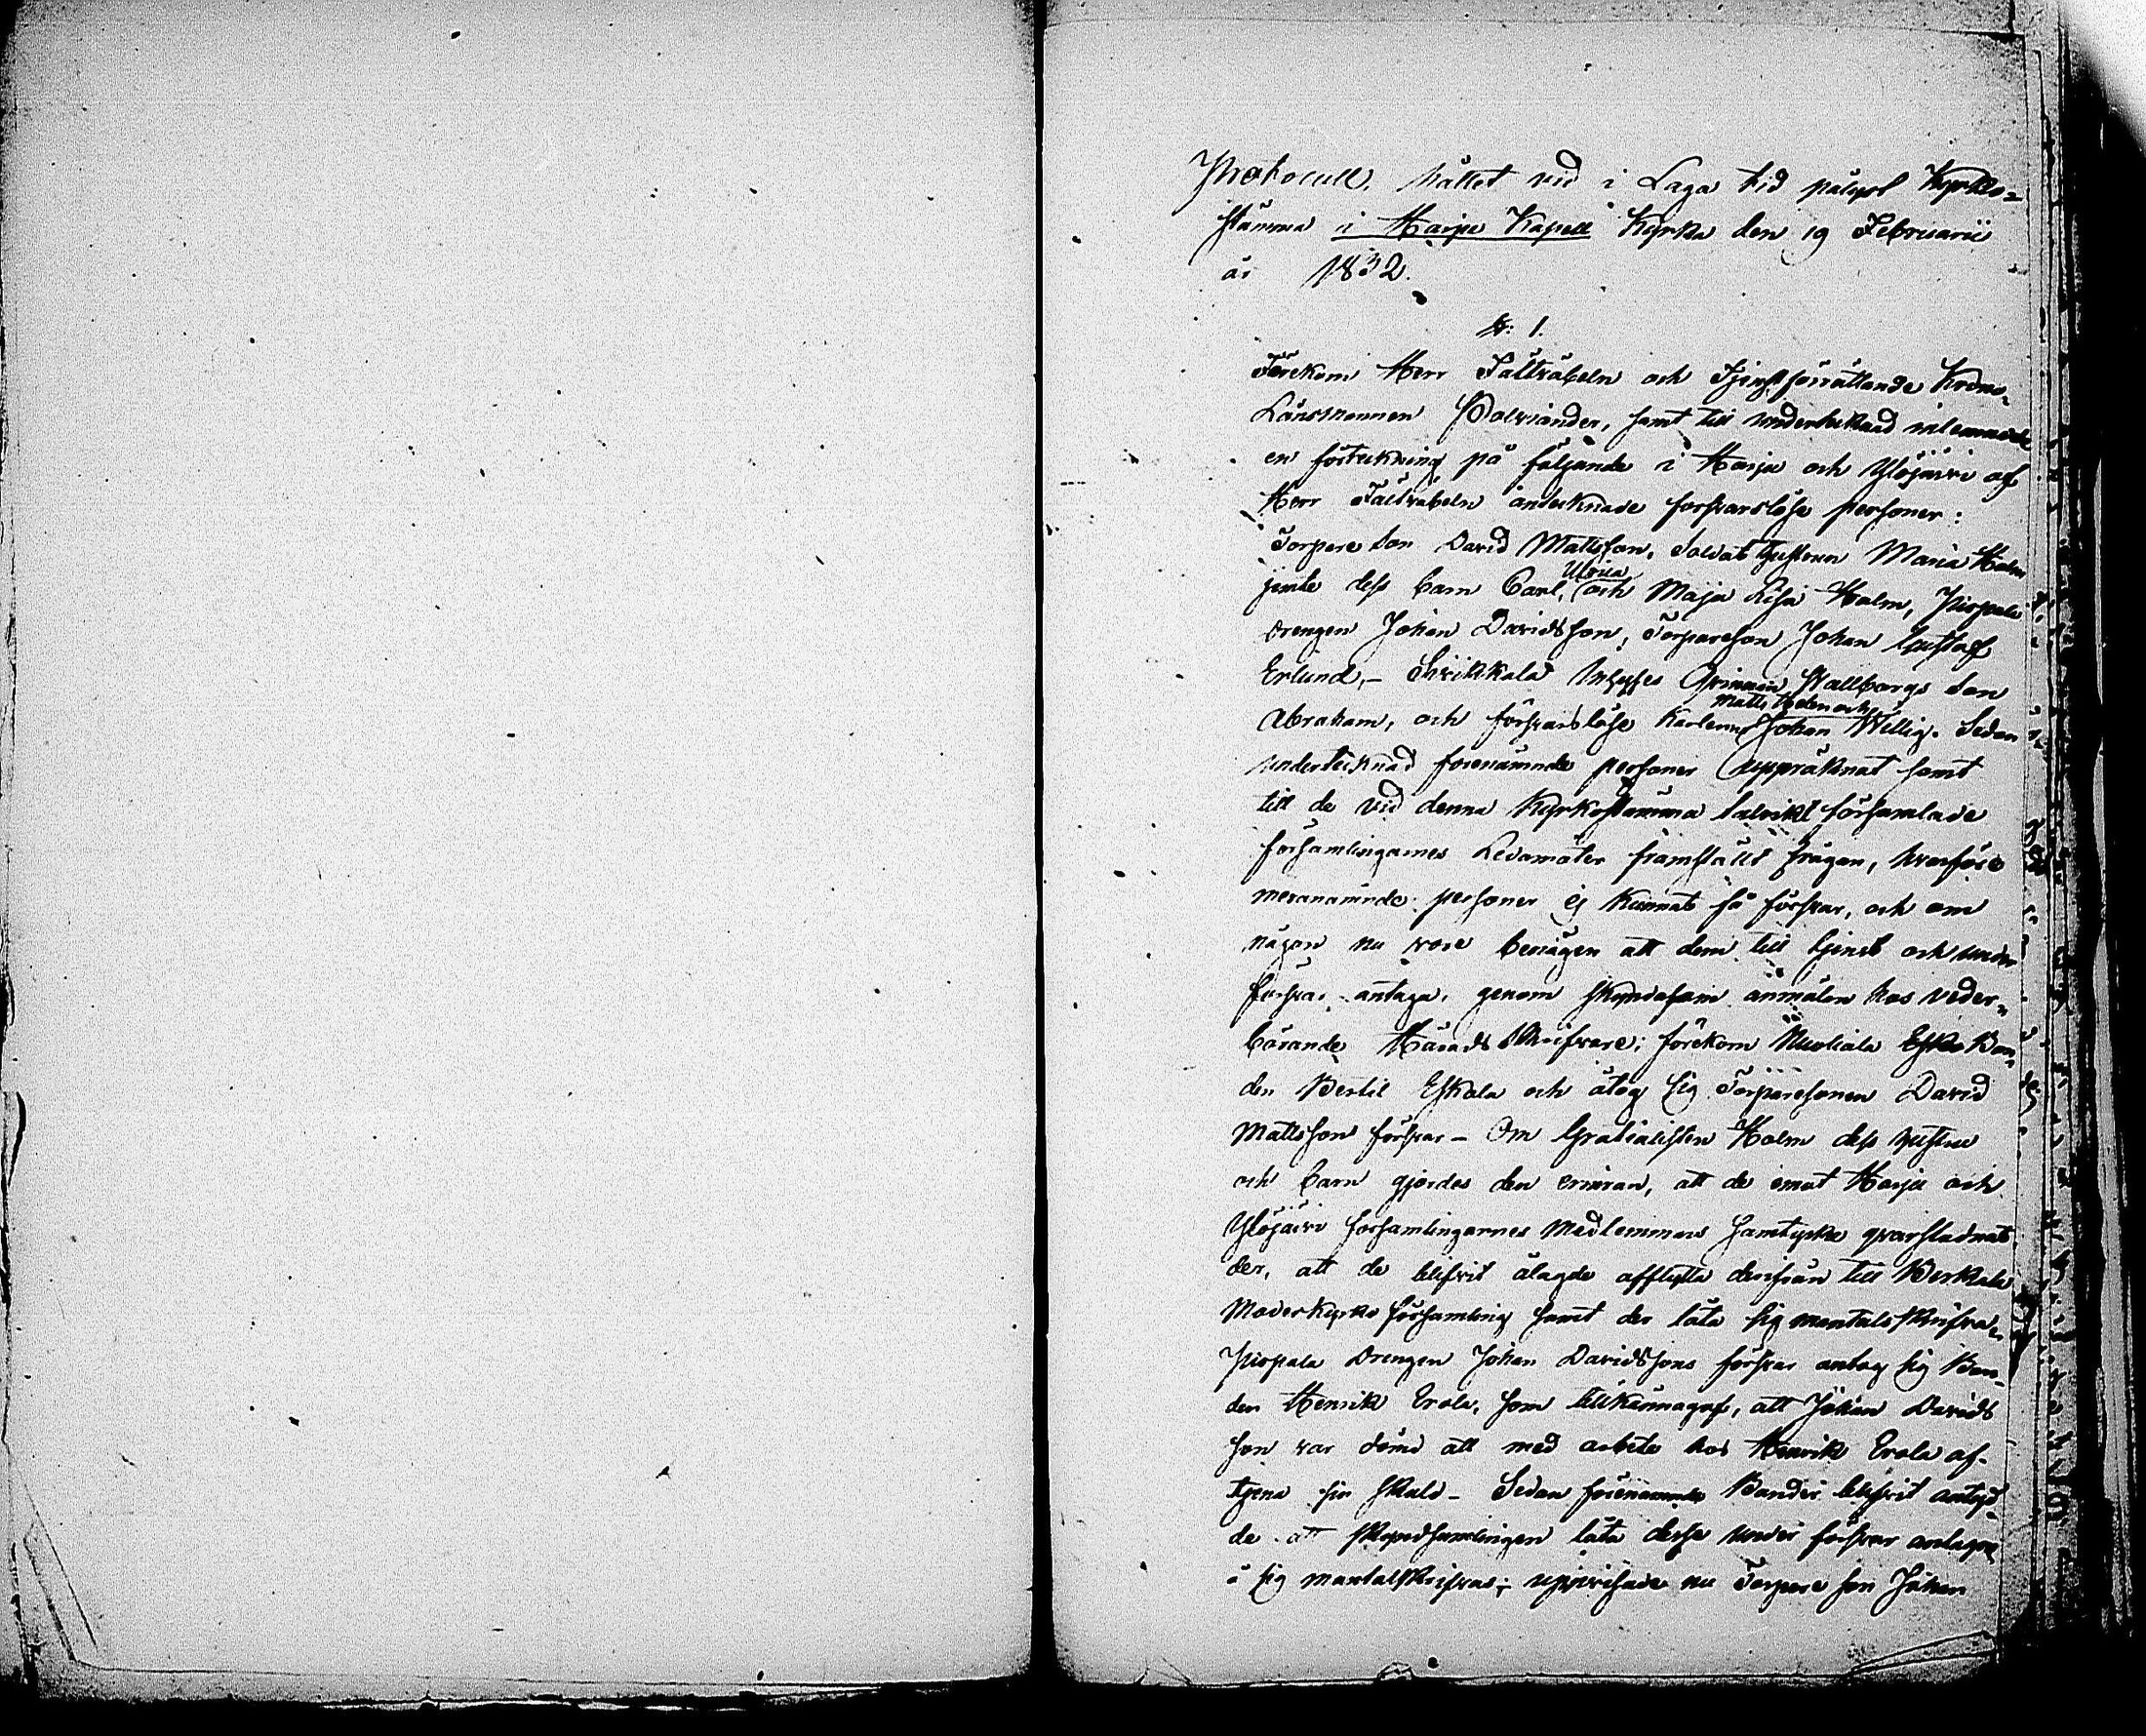 Protocoll, hållet vid i Laga tid pålyst Kyrko-
stämma i Harju Kapell Kyrka den 19 Februarii
år 1832.
N: 1.
Förekom Herr Fältväbeln och Tjenstförrättande Krono-
Länsmannen Palviander, samt till undertecknad inlemnade
en förteckning på följande i Harju och Ylöjärvi af
Herr Fältväbeln antecknade försvarslöse personer:
Torpare Son David Mattsson, Soldats hustrun Maria Holm
jemte dess barn Carl, Ulrica och Maja Lisa Holm, Pispala
drengen Johan Davidsson, Torpareson Johan Gustaf
Erlund, - Inhyses Stallbergs Son
Abraham, och försvarslöse Karlarne Matts Helen och Johan Willig. Sedan
undertecknad förenämnde personer uppräknat samt
till de vid denna Kyrkostämma talrikt församlade
församlingarnes Ledamöter framställt frågan, hvarföre
mernämnde personer ej kunnat få försvar, och om
någon nu vore benägen att dem till tjenst och under
försvar antaga, genom skyndesam anmälan hos veder-
börande Härads Skrifvare; förekom Nuoliala Bon-
den Bertil Eskola och åtog sig Torparesonen David
Mattsson försvar - Om Gratialisten Holm dess hustru
och barn gjordes den erinran, att de emot Harju och
Ylöjärvi församlingarnes Medlemmars samtycke qvarstadnat
der, att de blifvit ålagde afflytta derifrån till Birkala
Moderkyrko församling samt der låta sig mantalsskrifva.
Pispala Drengen Johan Davidssons försvar antog sig Bon-
den Henrik Erola, som tillkännagaf, att Johan Davids
son var dömd att med arbete hos Henrik Erola af-
tjena sin skuld - Sedan förenämnde Bönder blifvit antyd-
de att skyndsamligen låta desse under försvar antagne
å sig mantalskrifvas; uppvisade nu Torpare son Johan